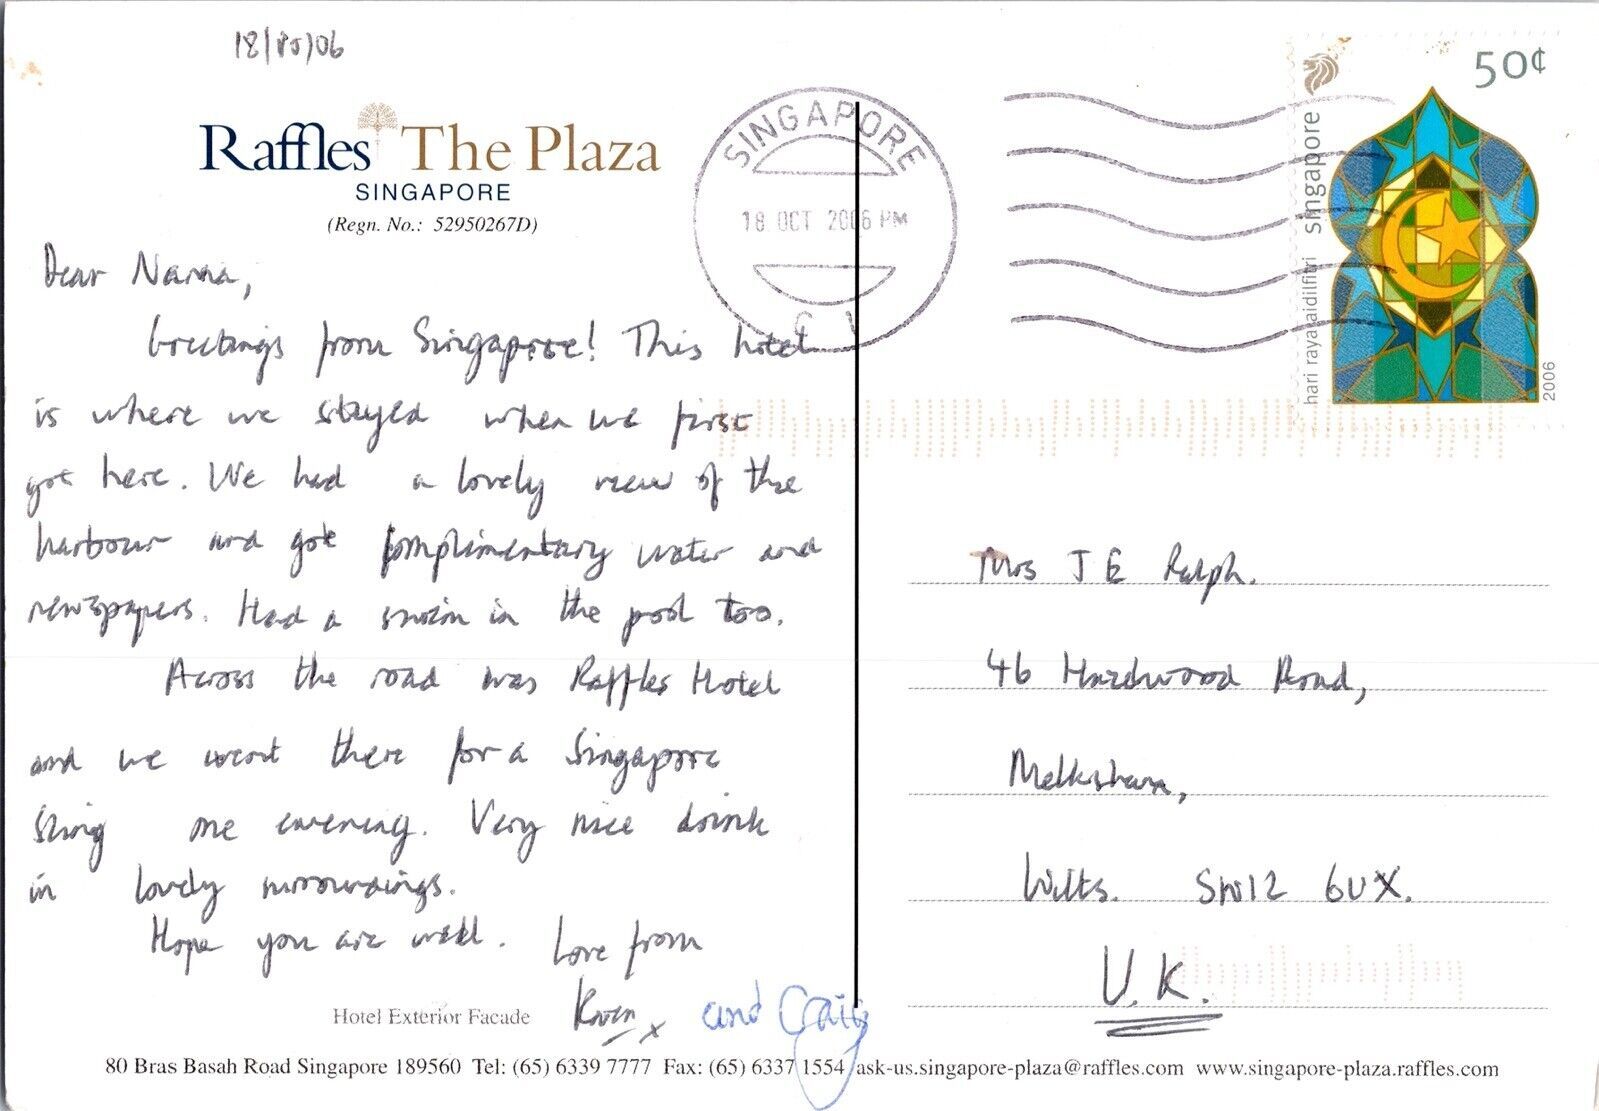 18/10/06
Raffles The Plaza
SINGAPORE
(Regn. No.: 52950267D)
Dear Nanna,
Greetings from Singapore! This hotel
is where we stayed when we first
got here. We had a lovely view of the
harbour and got complimentary water and
newspapers. Had a swim in the pool too.
Across the road was Raffles Hotel
and we went there for a Singapore
Sling one evening. Very nice drink
in lovely surroundings.
Hope you are well. Love from
Karen x and Craig
Hotel Exterior Facade
80 Bras Basah Road Singapore 189560 Tel: (65) 6339 7777 Fax: (65) 6337 1554 ask-us.singapore-plaza@raffles.com www.singapore-plaza.raffles.com
SINGAPORE
18 OCT 2006 PM
C
50¢
singapore
hari raya aidilfitri
2006
Mrs J E Ralph.
46 Hazelwood Road,
Melksham,
Wilts. SN12 6UX.
U.K.